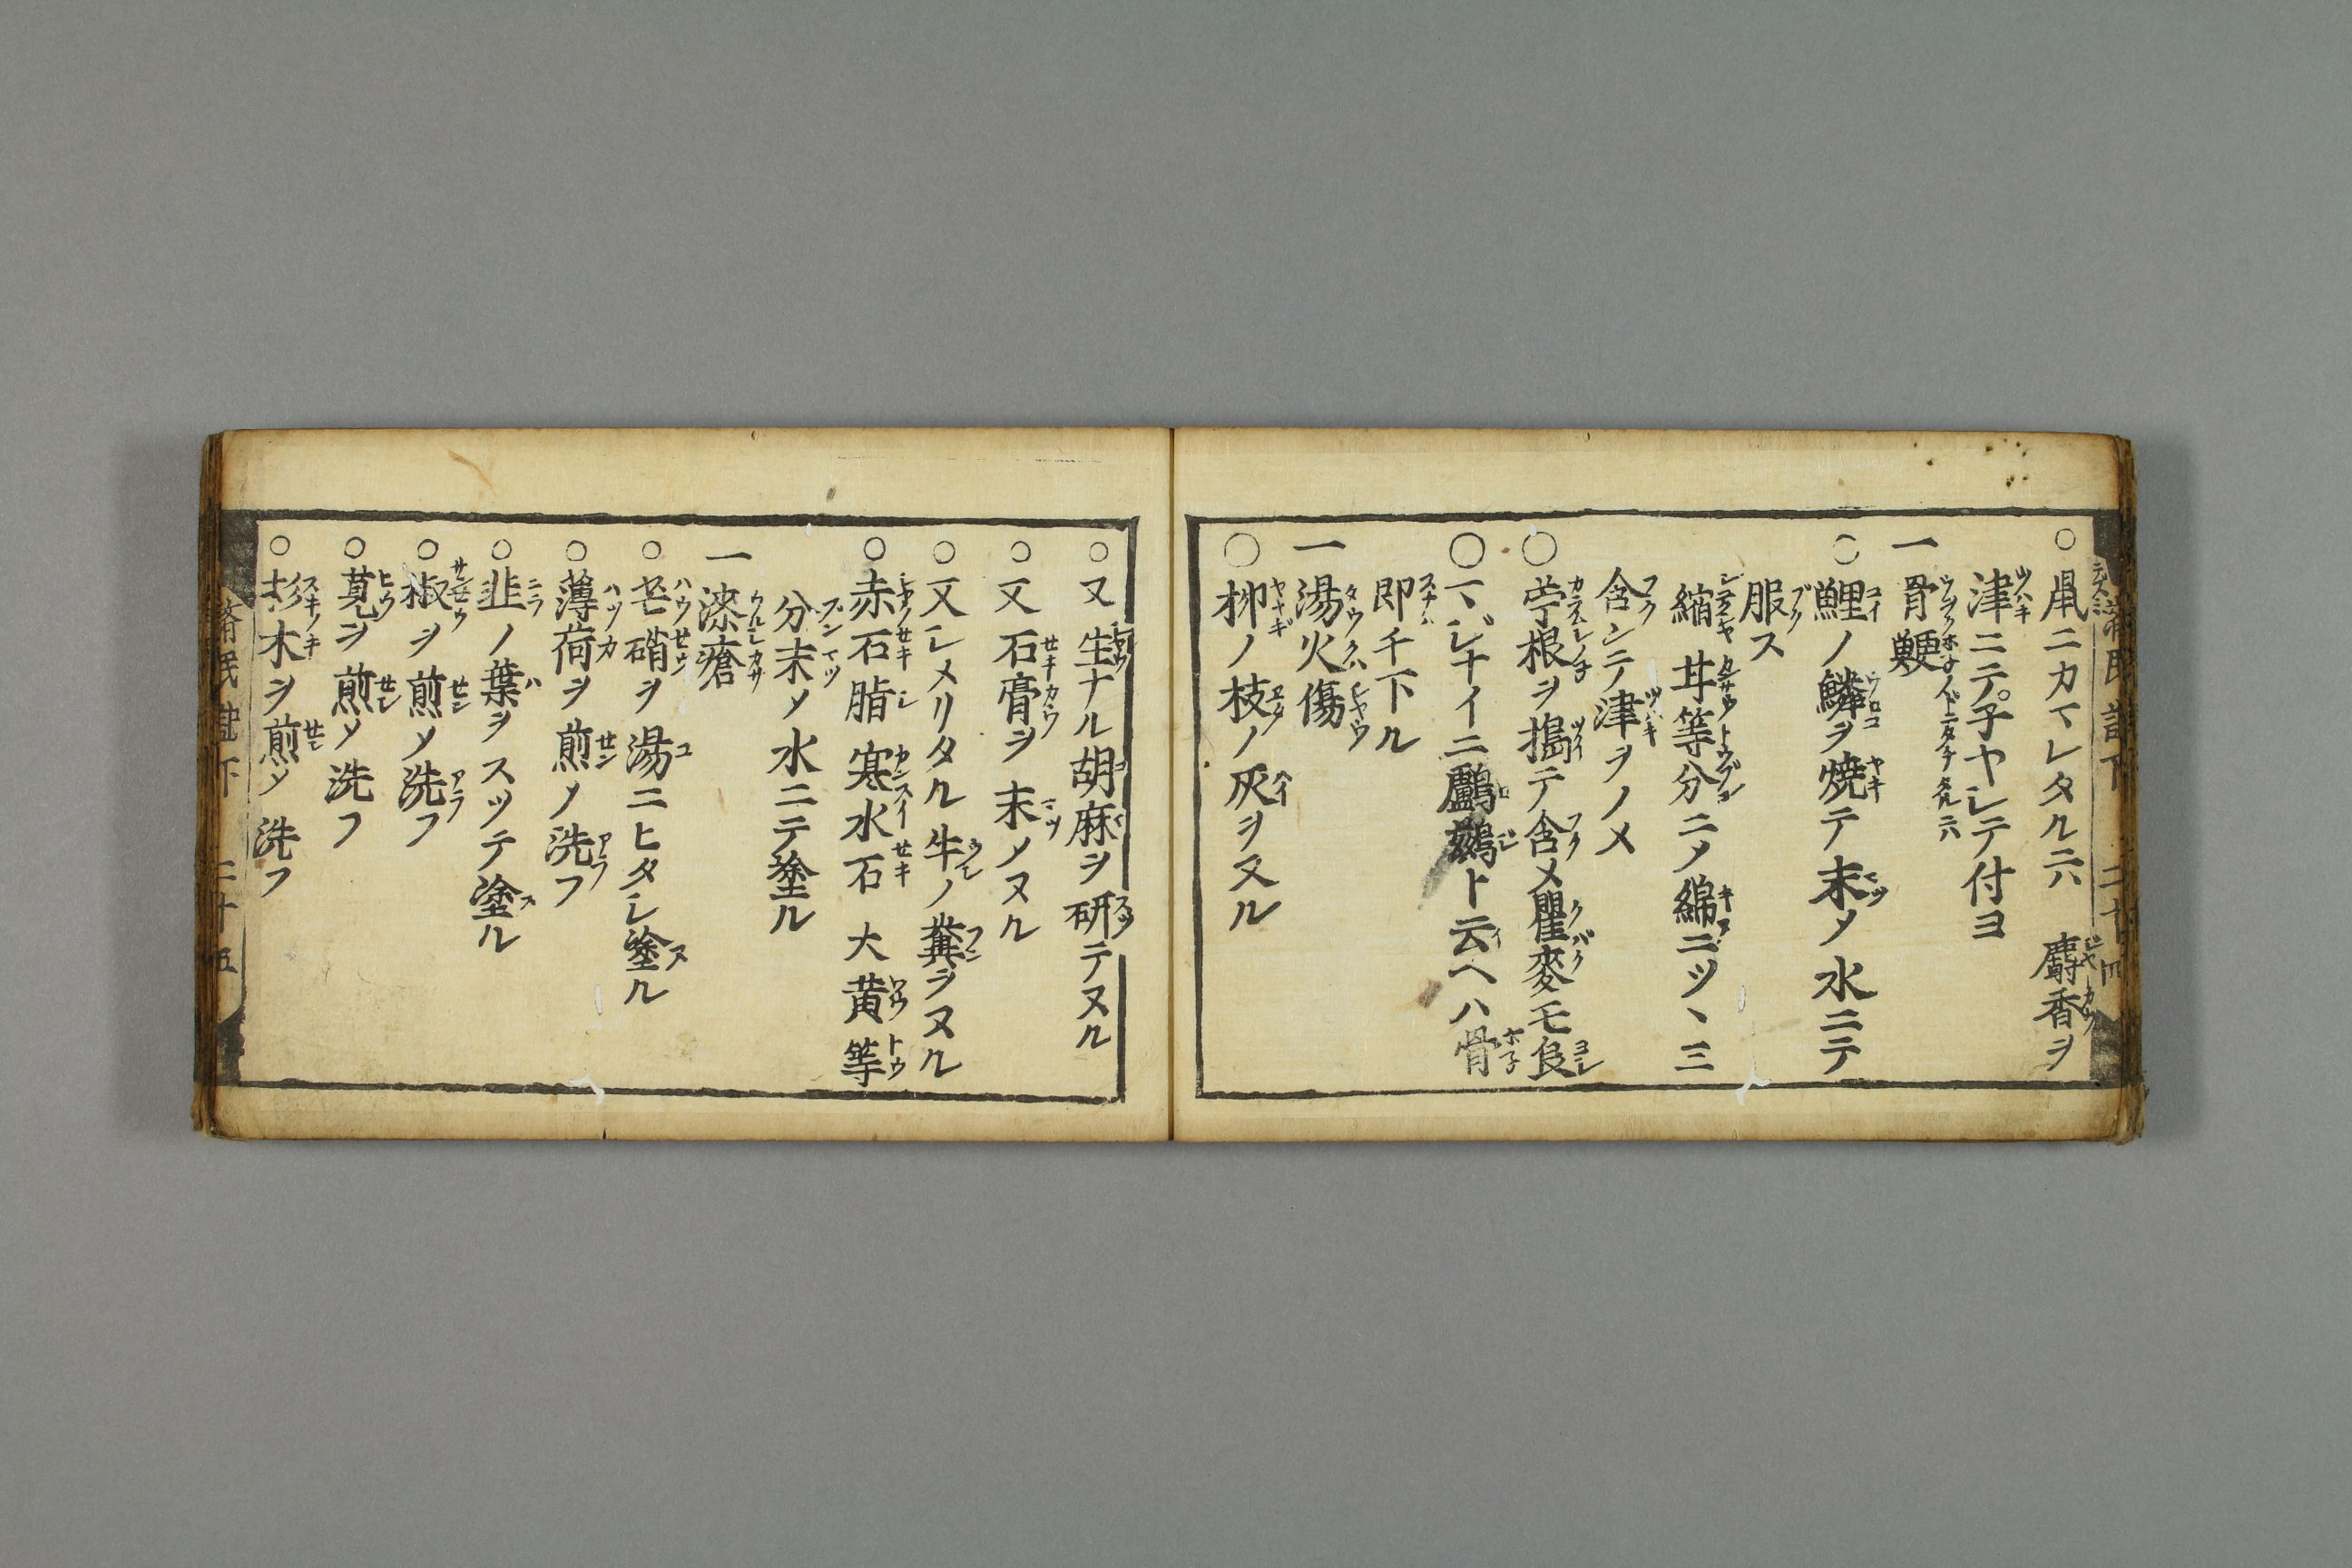 ○鼠ニカマレタル六 麝香ヲ
津ニテ子ヤシテ付ヨ
一骨鯁 ウヲノホネノドニタチタル六
○鯉ノ鱗ヲ焼テ末メ水ニテ
服ス
縮 甘等分ニメ綿ニツヽミ
含ンテ津ヲノメ
○苧根ヲ搗テ含メ瞿麥モ良
○一ヽシナイニ鸕鷀ト云ヘハ骨
即チ下ル
一湯火傷
○柳ノ枝ノ灰ヲヌル
○又生ナル胡麻ヲ研テヌル
○又石膏ヲ末メヌル
○又シメリタル牛ノ糞ヲヌル
○赤石脂寒水石大黄等
分末メ水ニテ塗ル
一漆瘡
○芒硝ヲ湯ニヒタシ塗ル
○薄荷ヲ煎メ洗フ
○韮ノ葉ヲスツテ塗ル
○椒ヲ煎メ洗フ
○莧ヲ煎メ洗フ
○杉木ヲ煎メ洗フ
濟民記下 二十五